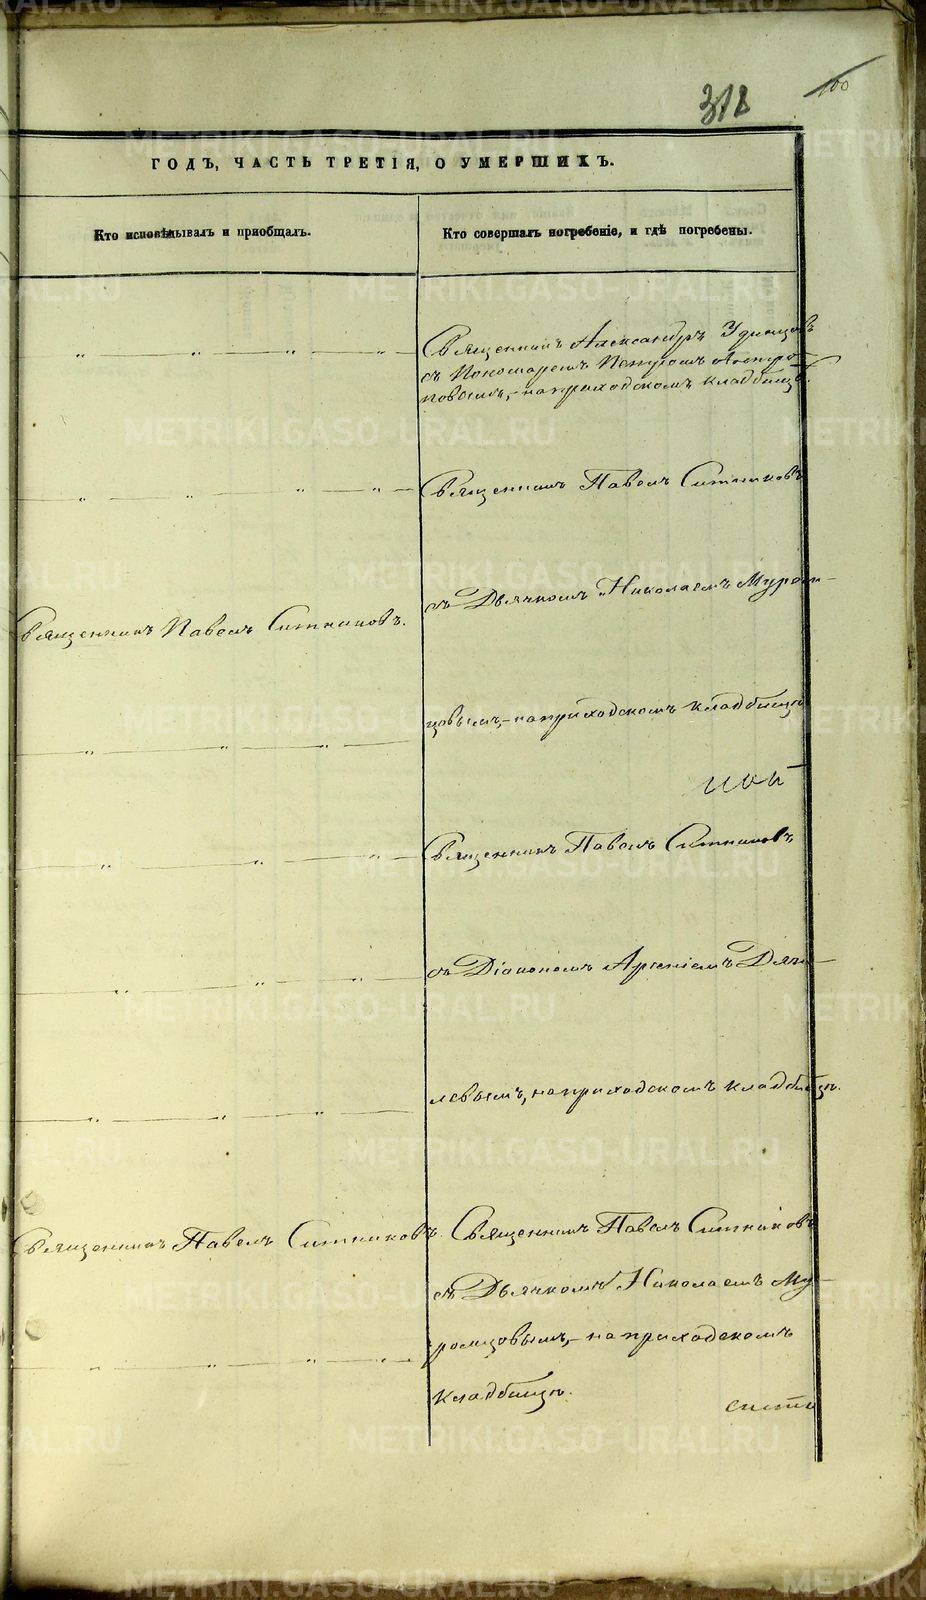 318
100
ГОДЪ, ЧАСТЬ ТРЕТІЯ, О УМЕРШИХЪ.
Кто исповѣдывалъ и пріобщалъ.
Кто совершалъ погребеніе, и гдѣ погребены.
Священникъ Александръ Удинцовъ
съ Пономаремъ Петромъ
повымъ,- на приходскомъ кладбищѣ.
Священникъ Павелъ Ситниковъ
съ Дьячкомъ Николаемъ Муром-
Священникъ Павелъ Ситниковъ.
цовымъ,- на приходскомъ кладбищѣ
Священникъ Павелъ Ситниковъ
съ Діакономъ Арсеніемъ
левымъ, на приходскомъ кладбищѣ.
Священникъ Павелъ Ситниковъ.
Священникъ Павелъ Ситниковъ
съ Дьячкомъ Николаемъ Му-
ромцовымъ,- на приходскомъ
кладбищѣ.
METRIKI.GASO-URAL.RU